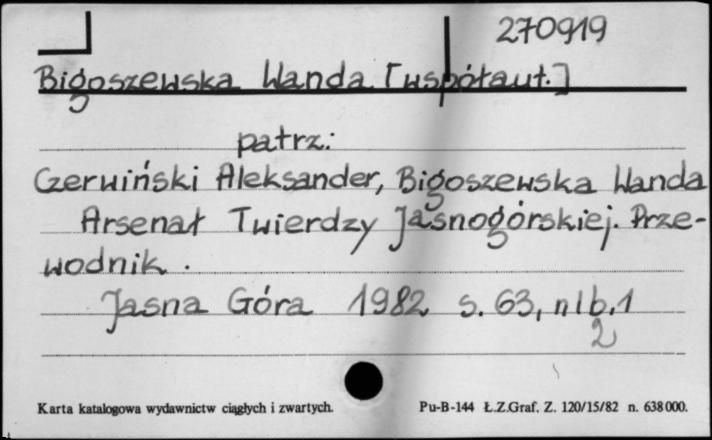 270919
Bigoszewska Wanda [współaut.]
patrz:
Czerwiński Aleksander, Bigoszewska Wanda
Arsenał Twierdzy Jasnogórskiej. Prze-
wodnik.
Jasna Góra 1982 s. 63, nlb. 1
2
Karta katalogowa wydawnictw ciągłych i zwartych.
Pu-B-144 Ł.Z.Graf. Z. 120/15/82 n. 638000.